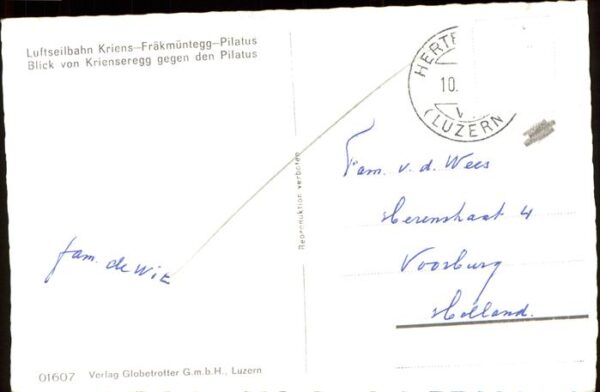 Luftseilbahn Kriens–Fräkmüntegg–Pilatus
Blick von Krienseregg gegen den Pilatus
HERTE
10.
(LUZERN
Reproduktion verboten
Fam. v. d. Wees
Herenstraat 4
Voorburg
Holland.
fam. de Wit
01607 Verlag Globetrotter G.m.b.H., Luzern